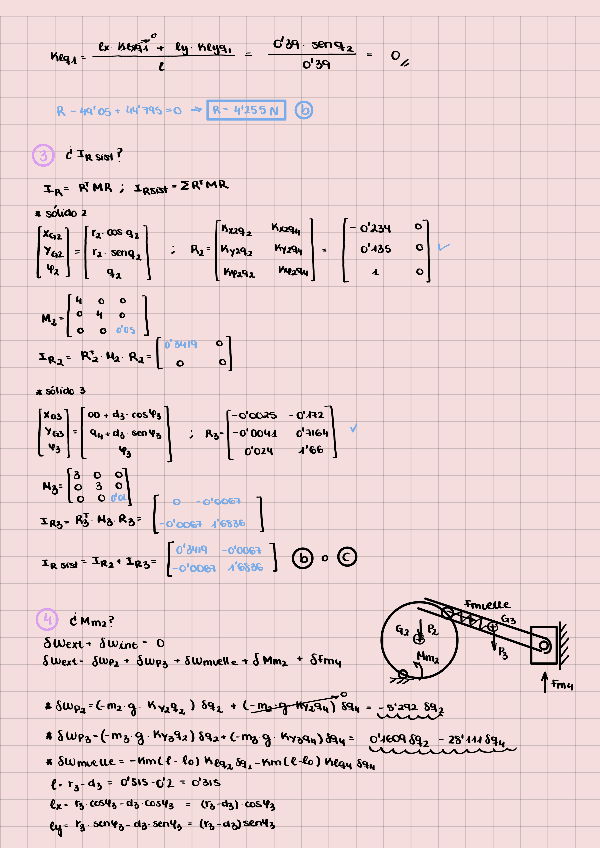 Klq1 = (lx · Klxq1 → 0 + ly · Klyq1) / l = (0'39 · sen q2) / 0'39 = 0//
R - 49'05 + 44'795 = 0 → R = 4'255 N (b)
③ ¿ IR sist?
IR = RᵀMR ; IRsist = ΣRᵀMR
* sólido 2
[xG2 yG2 φ2] = [r2 · cos q2 r2 · sen q2 q2] ; R2 = [Kx2q2 Kx2q4 Ky2q2 Ky2q4 Kφ2q2 Kφ2q4] = [-0'234 0 0'135 0 1 0] ✓
M2 = [4 0 0 0 4 0 0 0 0'05]
IR2 = R2ᵀ · M2 · R2 = [0'3419 0 0 0]
* sólido 3
[xG3 yG3 φ3] = [00 + d3 · cosφ3 q4 + d3 · senφ3 φ3] ; R3 = [-0'0025 -0'172 -0'0041 0'7164 0'024 1'66] ✓
M3 = [3 0 0 0 3 0 0 0 0'01]
IR3 = R3ᵀ · M3 · R3 = [0 -0'0067 -0'0067 1'6836]
IR sist = IR2 + IR3 = [0'3419 -0'0067 -0'0067 1'6836] (b) o (c)
④ ¿ Mm2?
δWext + δWint = 0
δWext = δWP2 + δWP3 + δWmuelle + δMm2 + δfm4
Fmuelle
G3
G2
P2
Mm2
P3
Fm4
* δWP2 = (-m2 · g · Ky2q2) δq2 + (-m2 · g · Ky2q4) → 0 δq4 = -5'292 δq2
* δWP3 = (-m3 · g · Ky3q2) δq2 + (-m3 · g · Ky3q4) δq4 = 0'1609 δq2 - 28'111 δq4
* δWmuelle = -Km(l - l0) Klq2 δq2 - Km(l - l0) Klq4 δq4
l = r3 - d3 = 0'515 - 0'2 = 0'315
lx = r3 · cosφ3 - d3 · cosφ3 = (r3 - d3) · cosφ3
ly = r3 · senφ3 - d3 · senφ3 = (r3 - d3) senφ3